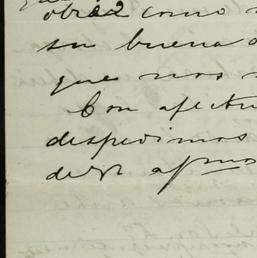 obra como
su buena
que nos
Con afectu
despedimos
de V. afmos